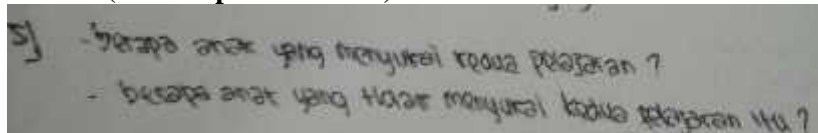 5) - berapa anak yang menyukai kedua pelajaran ?
- berapa anak yang tidak menyukai kedua pelajaran itu ?